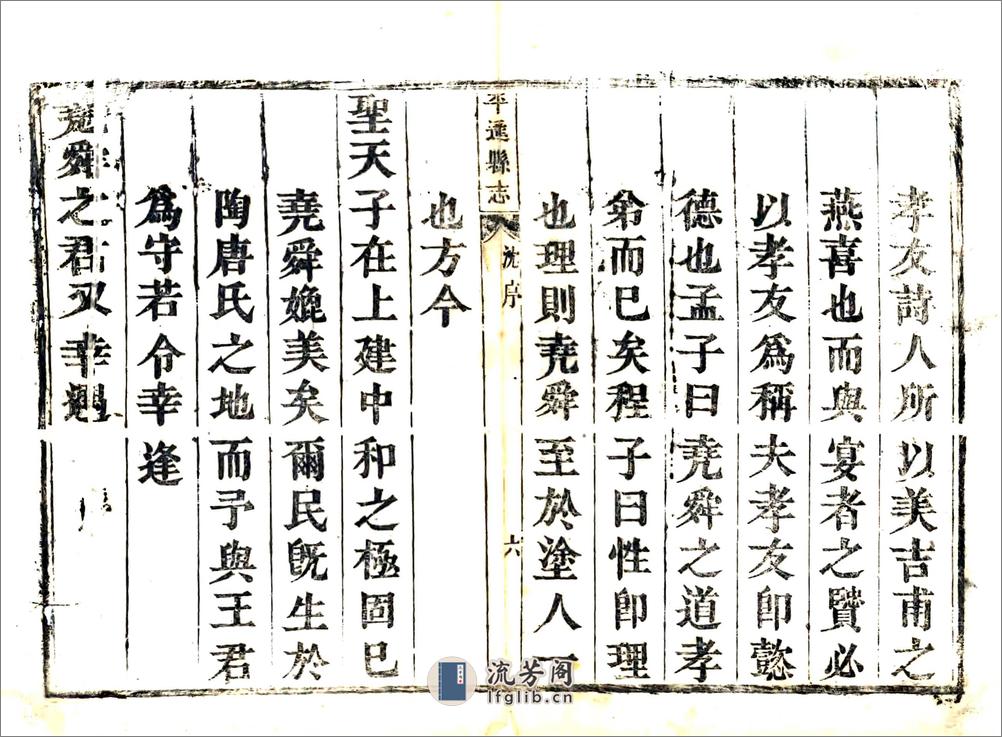 孝友詩人所以美吉甫之
燕喜也而與宴者之賢必
以孝友爲稱夫孝友卽懿
德也孟子曰堯舜之道孝
弟而已矣程子曰性卽理
也理則堯舜至於塗人一
也方今
平遙縣志
沈序
六
聖天子在上建中和之極固已
堯舜媲美矣爾民旣生於
陶唐氏之地而予與王君
爲守若令幸逢
堯舜之君又幸遇
流芳阁
lfglib.cn